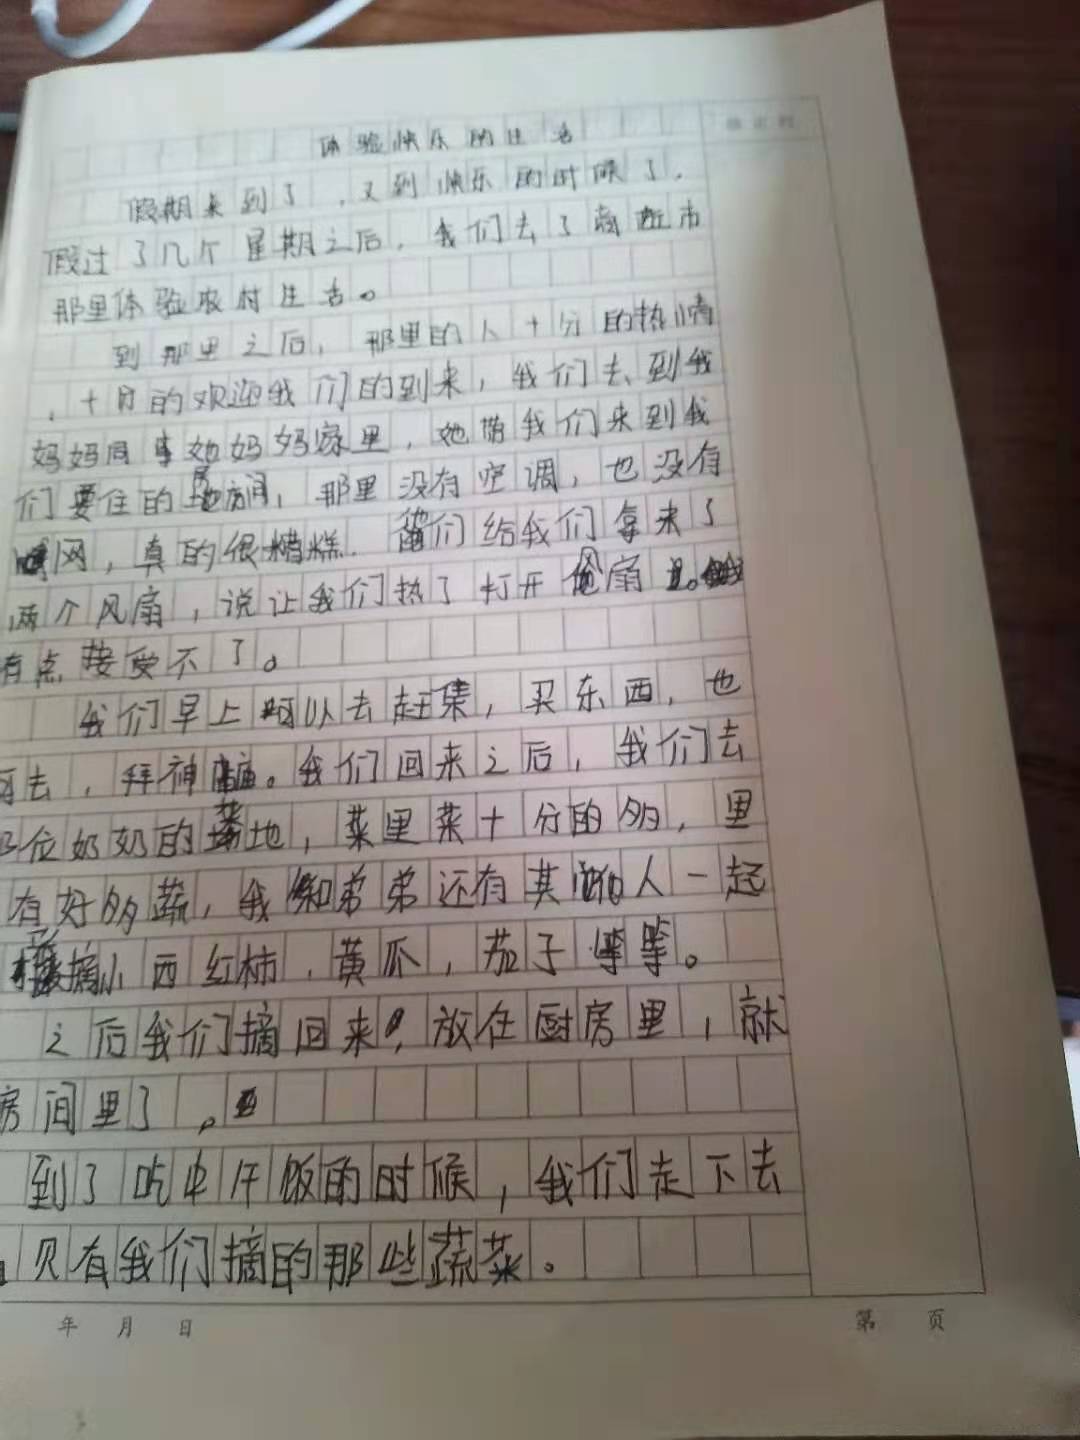 体验快乐的生活
假期来到了，又到快乐的时候了，
假过了几个星期之后，我们去了 市
那里体验农村生活。
到那里之后，那里的人十分的热情
，十月的欢迎我们的到来，我们去到我
妈妈同事她妈妈家里，她带我们来到我
们要住的房间，那里没有空调，也没有
网，真的很糟糕．他们给我们拿来了
两个风扇，说让我们热了打开 扇
有点接受不了。
我们早上可以去赶集，买东西，也
可去，拜神庙。我们回来之后，我们去
位奶奶的菜地，菜里菜十分的多，里
有好多蔬，我和弟弟还有其他人一起
摘小西红柿，黄瓜，茄子等等。
之后我们摘回来，放在厨房里，就
房间里了，
到了吃中午饭的时候，我们走下去
贝有我们摘的那些蔬菜。
年 月 日
第 页